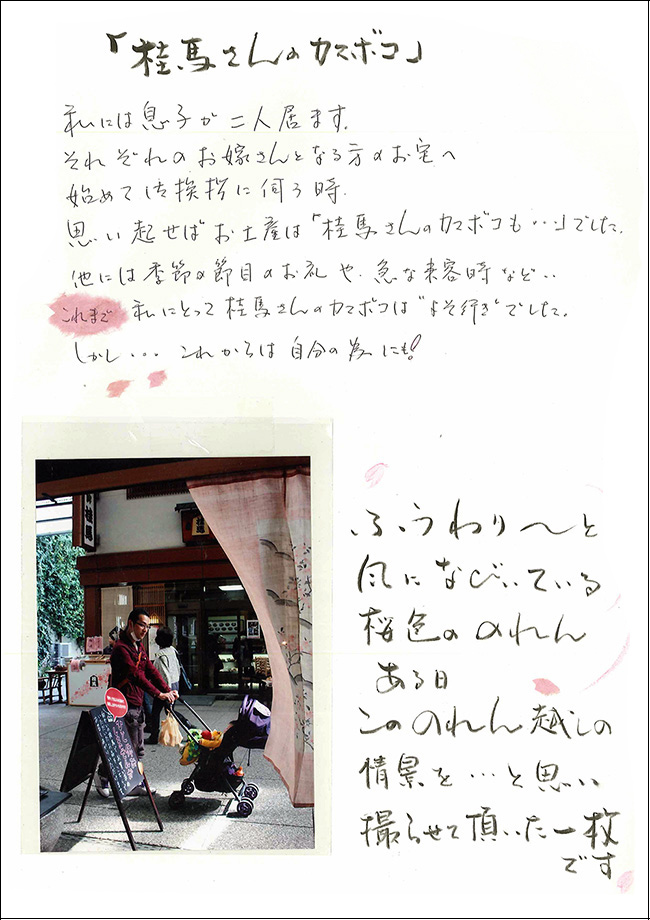 「桂馬さんのカマボコ」
私には息子が二人居ます。
それぞれのお嫁さんとなる方のお宅へ
始めて御挨拶に伺う時、
思い起せばお土産は「桂馬さんのカマボコも・・」でした。
他には季節の節目のお礼や、急な来客時など・・
これまで 私にとって桂馬さんのカマボコは“よそ行き”でした。
しかし・・・これからは自分の為にも!
ふうわり〜と
風になびいている
桜色ののれん
ある日
このれん越しの
情景を…と思い
撮らせて頂いた一枚
です